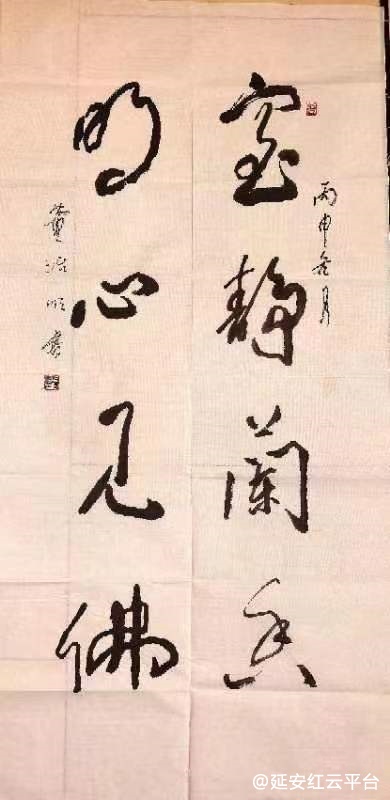 室静蘭香
丙申冬月
明心见佛
@延安红云平台